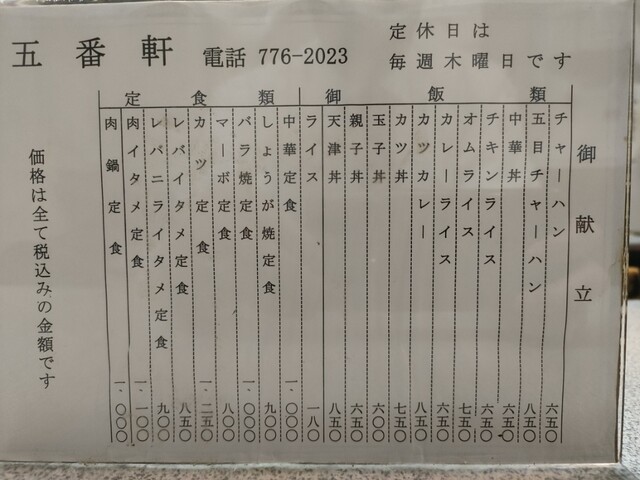 五番軒 電話 776-2023
定休日は
毎週木曜日です
御献立
御飯類
チャーハン 六五〇
五目チャーハン 八五〇
中華丼 六五〇
チキンライス 六五〇
オムライス 七五〇
カレーライス 六五〇
カツカレー 八五〇
カツ丼 七五〇
玉子丼 六〇〇
親子丼 六五〇
天津丼 八五〇
ライス 一八〇
定食類
中華定食 一、〇〇〇
しょうが焼定食 九〇〇
バラ焼定食 一、〇〇〇
マーボ定食 八〇〇
カツ定食 一、二五〇
レバイタメ定食 八五〇
レバニライタメ定食 九〇〇
肉イタメ定食 一、一〇〇
肉鍋定食 一、〇〇〇
価格は全て税込みの金額です